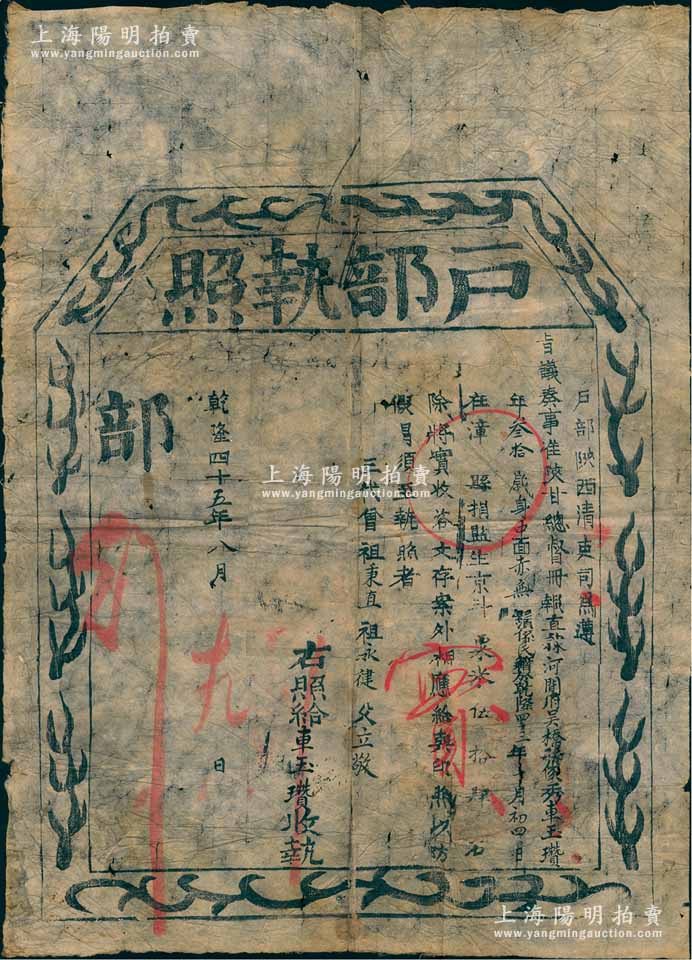 上海陽明拍賣
www.yangmingauction.com
戶部執照
戶部陝西清吏司為遵
旨議奏事准陝甘總督冊報直隸河間府吳橋縣俊秀車玉瓚
年叁拾歲身中面赤無鬚係民籍於乾隆四十二年十月初四日
在漳縣捐監生京斗粟米伍拾肆石
除將實收咨文存案外相應給與印照以防
假冒須至執照者
三代曾祖秉直祖永健父立敬
右照給車玉瓚收執
乾隆四十五年八月 日
九
部
實
上海陽明拍賣
www.yangmingauction.com
上海陽明拍賣
www.yangmingauction.com